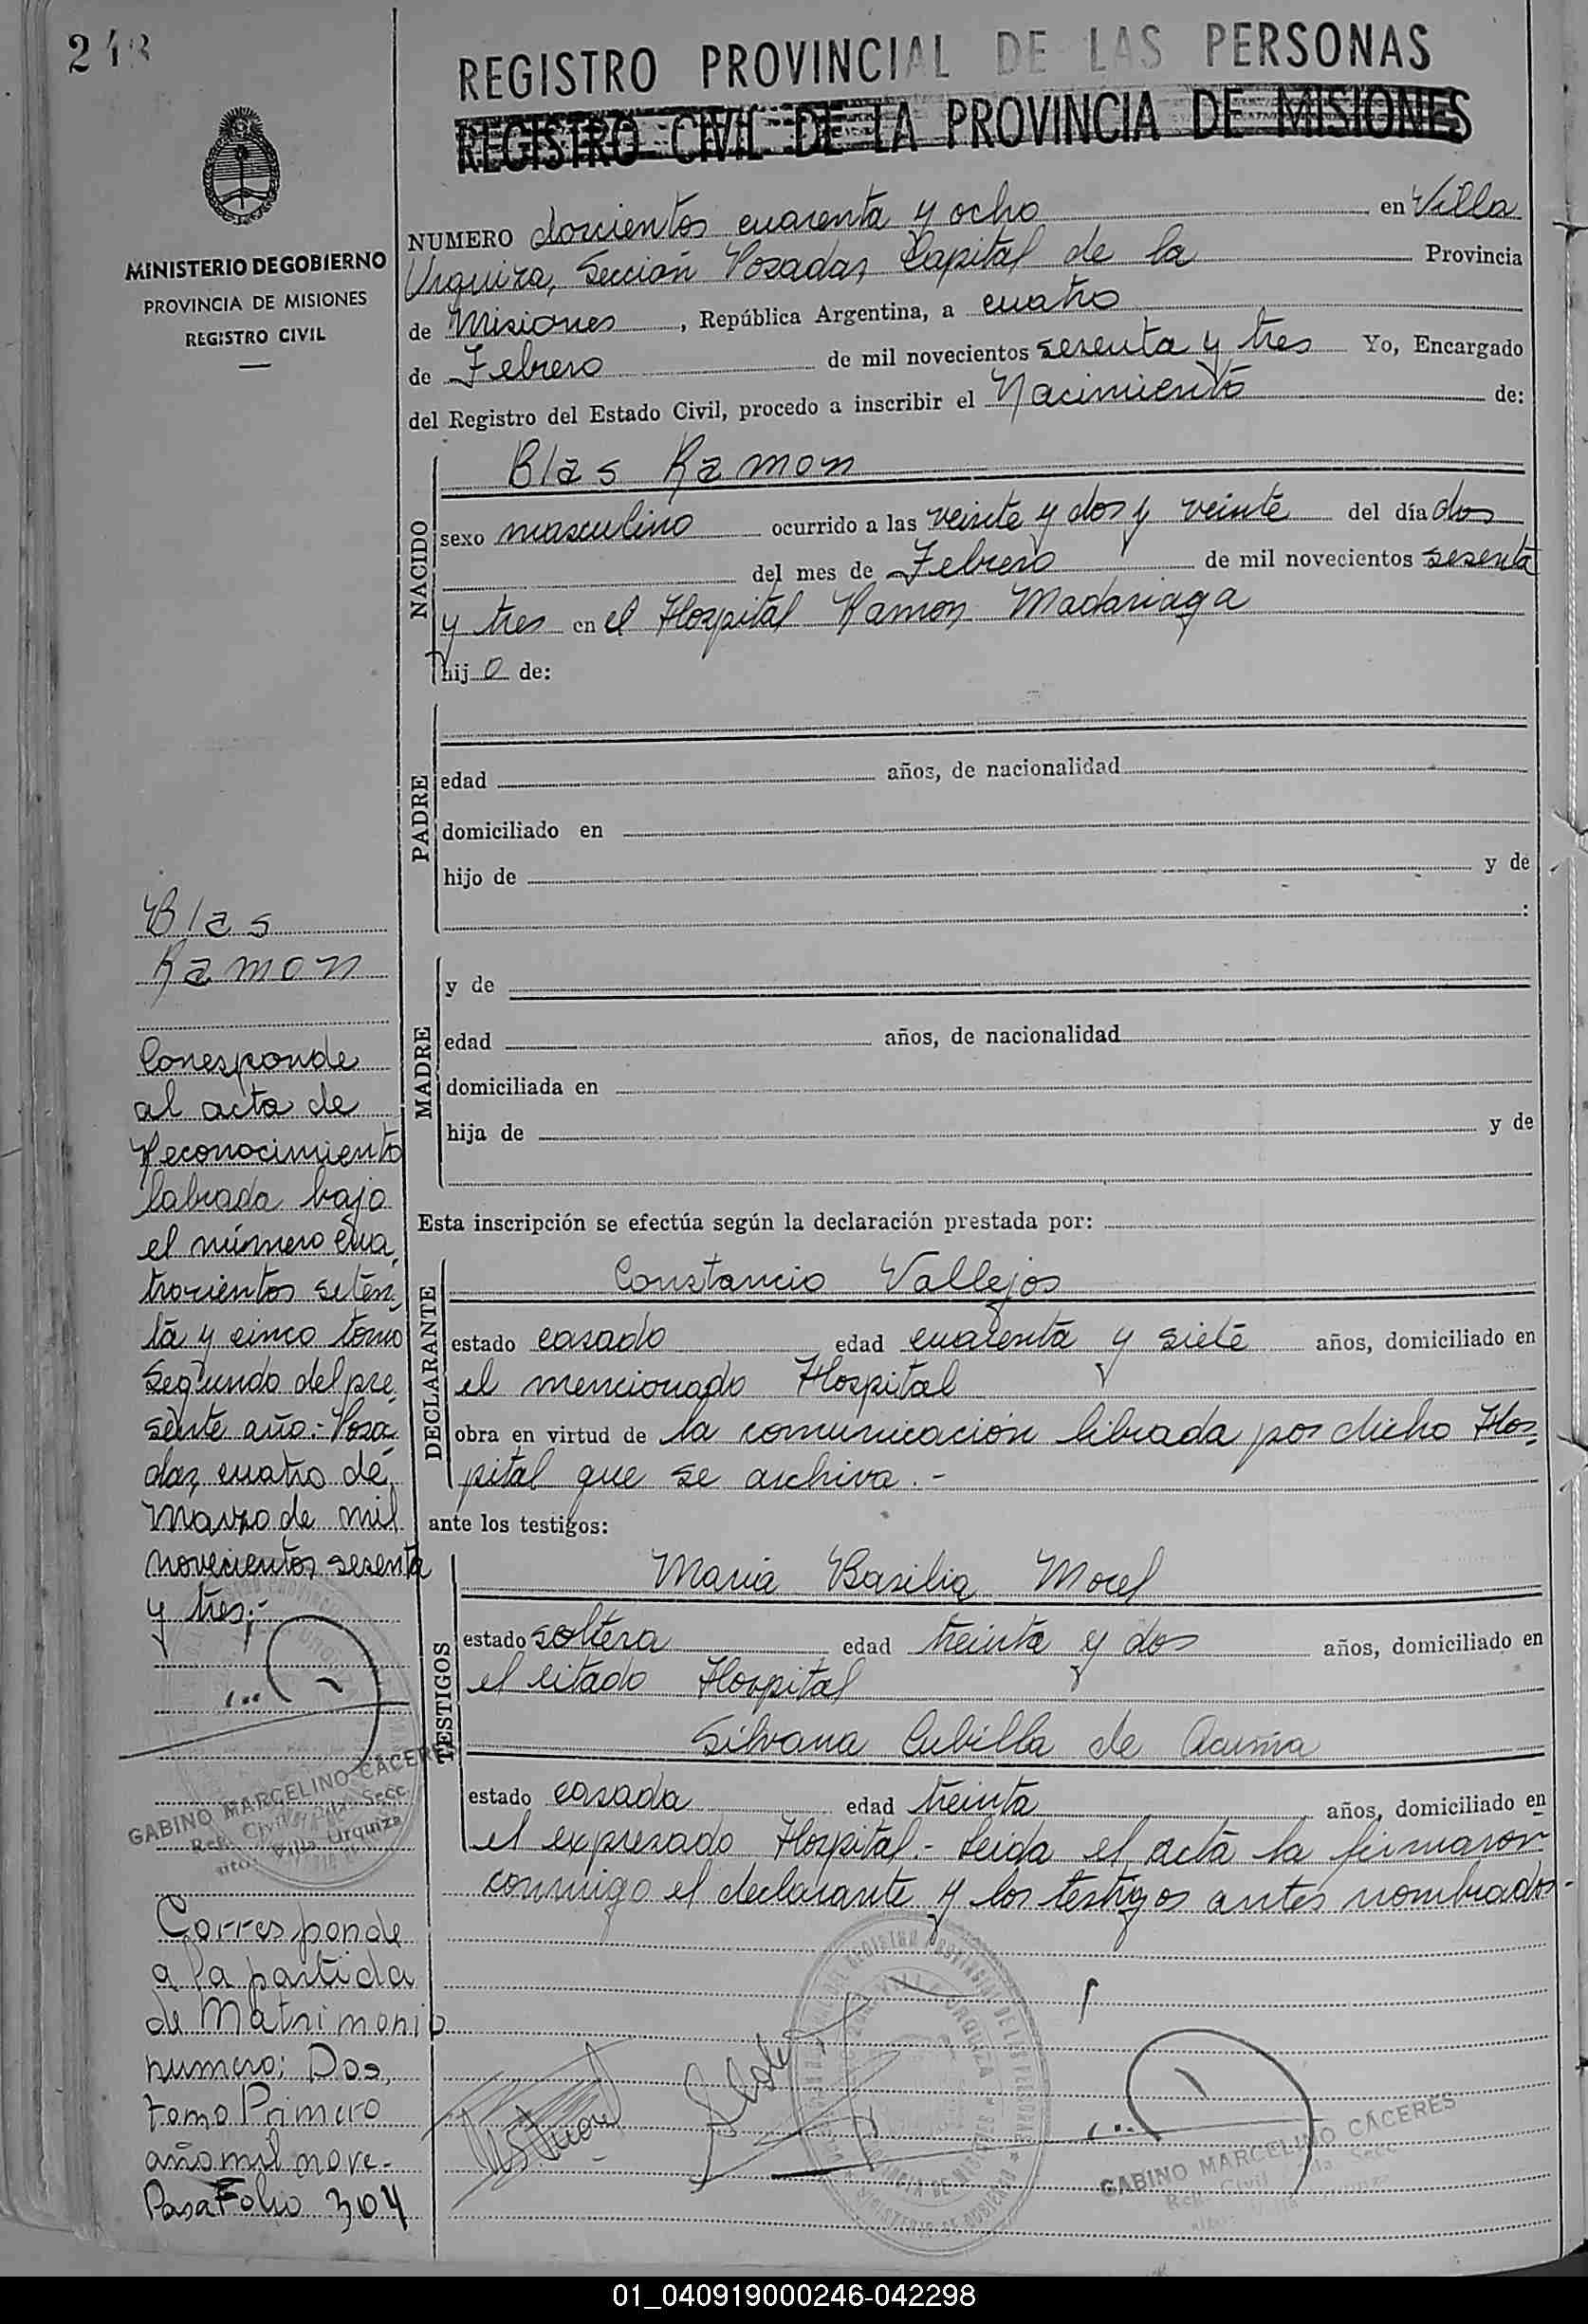 248
REGISTRO PROVINCIAL DE LAS PERSONAS
REGISTRO CIVIL DE LA PROVINCIA DE MISIONES
MINISTERIO DE GOBIERNO
PROVINCIA DE MISIONES
REGISTRO CIVIL
NUMERO doscientos cuarenta y ocho en Villa
Urquiza, Sección Posadas, Capital de la Provincia
de Misiones, República Argentina, a cuatro
de Febrero de mil novecientos sesenta y tres Yo, Encargado
del Registro del Estado Civil, procedo a inscribir el Nacimiento de:
NACIDO
Blas Ramon
sexo masculino ocurrido a las veinte y dos y veinte del día dos
del mes de Febrero de mil novecientos sesenta
y tres en el Hospital Ramon Madariaga
hijo de:
PADRE
edad años, de nacionalidad
domiciliado en
hijo de y de
:
MADRE
y de
edad años, de nacionalidad
domiciliada en
hija de y de
Esta inscripción se efectúa según la declaración prestada por:
DECLARANTE
Constancio Vallejos
estado casado edad cuarenta y siete años, domiciliado en
el mencionado Hospital
obra en virtud de la comunicación librada por dicho Hos-
pital que se archiva.-
ante los testigos:
TESTIGOS
Maria Basilia Morel
estado soltera edad treinta y dos años, domiciliado en
el citado Hospital
Silvana Cubilla de Acuña
estado casada edad treinta años, domiciliado en
el expresado Hospital.- Leida el acta la firmaron
conmigo el declarante y los testigos antes nombrados-
Blas
Ramon
Corresponde
al acta de
Reconocimiento
labrada bajo
el número cua-
trocientos seten-
ta y cinco tomo
Segundo del pre-
sente año:- Posa-
das, cuatro de
Marzo de mil
novecientos sesenta
y tres.-
GABINO MARCELINO CÁCERES
Reg. Civil Secc.
Villa Urquiza
Corresponde
a la partida
de Matrimonio
numero: Dos,
tomo Primero
año mil nove-
Pasa Folio 304
GABINO MARCELINO CÁCERES
Reg. Civil Secc.
01_040919000246-042298